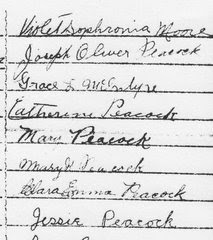 Violet Sophronia Moore
Joseph Oliver Peacock
Grace L McIntyre
Catherine Peacock
Mary Peacock
Mary H Peacock
Clara Emma Peacock
Jessie Peacock